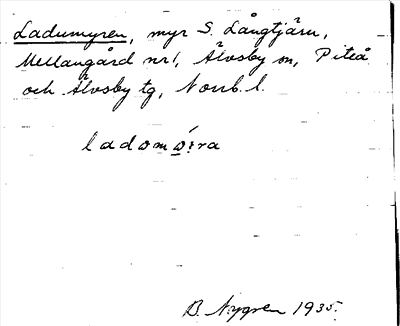 Ladumyren, myr S. Långtjärn,
Mellangård nr 1, Älvsby sn, Piteå
och Älvsby tg, Norrb. l.
ladomö:ra
B. Nygren 1935.